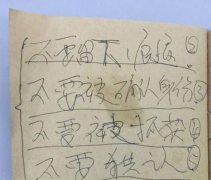 不要留下痕迹
不要被确认身份
不要被抓获
不要供认